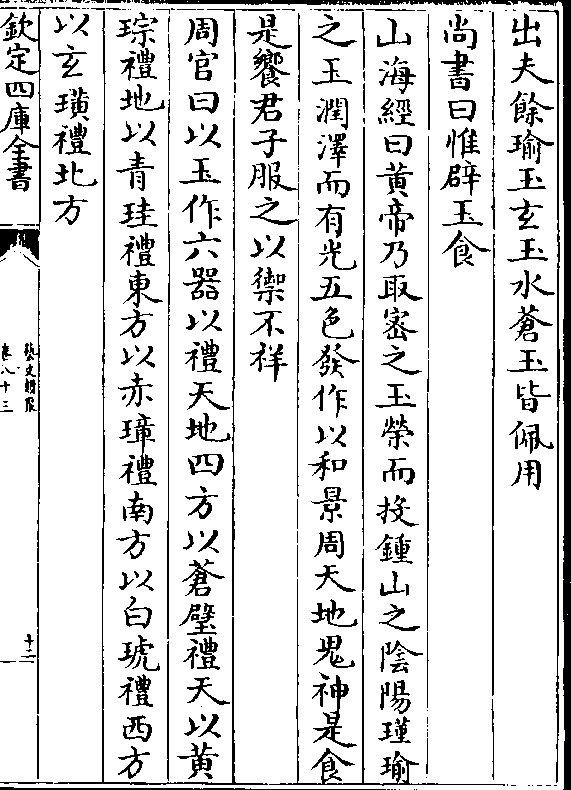 出夫餘瑜玉玄玉水蒼玉皆佩用
尚書曰惟辟玉食
山海經曰黄帝乃取密之玉榮而投鍾山之隂陽瑾瑜
之玉潤澤而有光五色發作以和景周天地鬼神是食
是饗君子服之以禦不祥
周官曰以玉作六器以禮天地四方以蒼璧禮天以黄
琮禮地以青珪禮東方以赤璋禮南方以白琥禮西方
以玄璜禮北方
欽定四庫全書
藝文類聚
卷八十三
十二